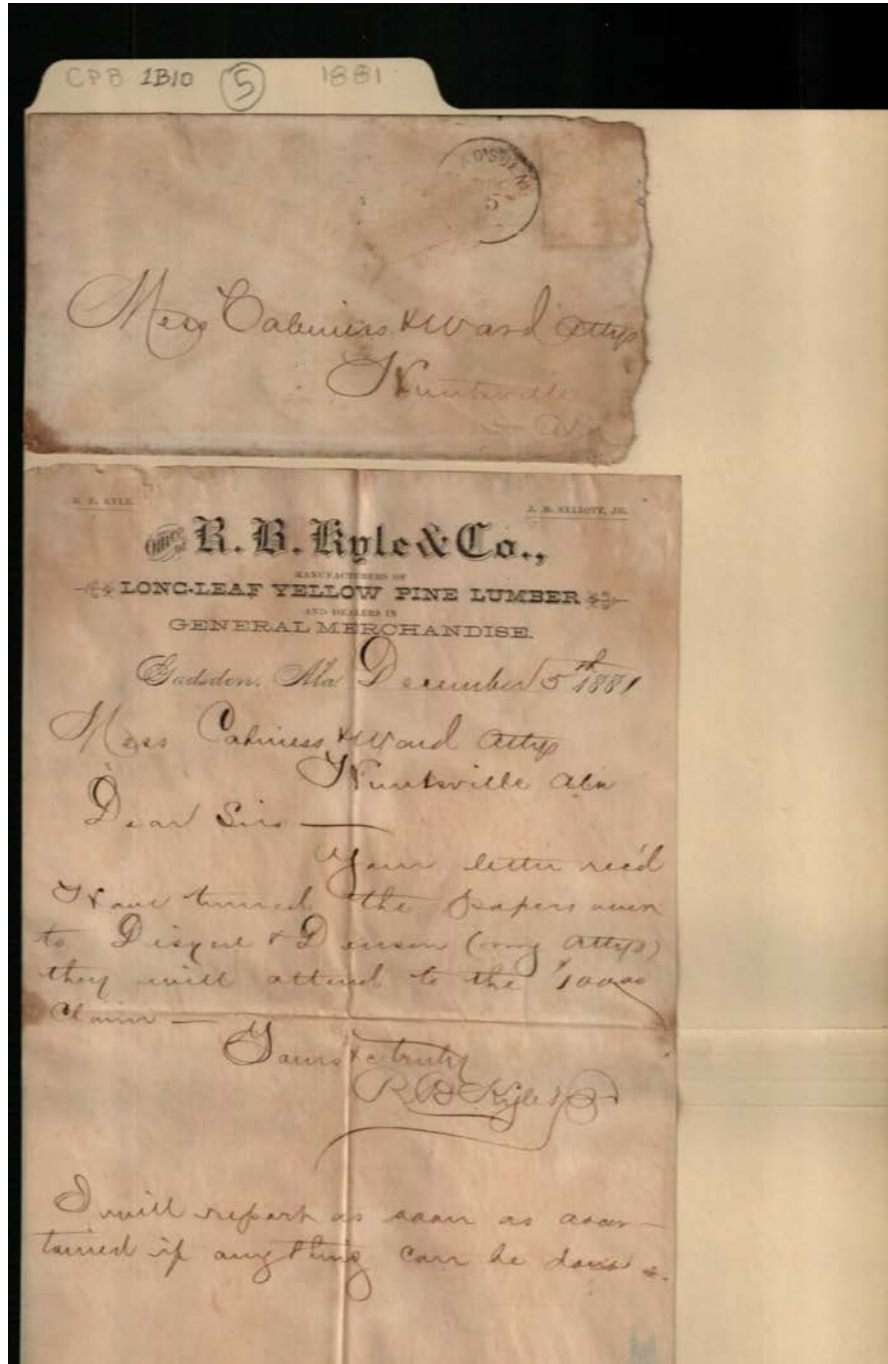 CPB 1B10 5 1881
5
Mess Cabiniss & Ward Attys
Huntsville
Ala
R. B. KYLE. J. M. ELLIOTT, JR.
Office of R. B. Kyle & Co.,
MANUFACTURERS OF
LONG-LEAF YELLOW PINE LUMBER
AND DEALERS IN
GENERAL MERCHANDISE.
Gadsden, Ala December 5th 1881
Mess Cabiniss & Ward Attys
Huntsville Ala
Dear Sirs —
Your letter rec'd
Have turned the papers over
to Disque & Denson (my Attys)
they will attend to the
claim —
Yours &c truly
R B Kyle
I will report as soon as ascer-
tained if anything can be done